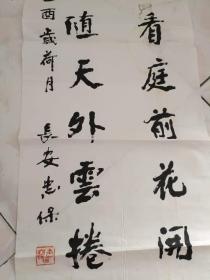 看庭前花开
随天外雲捲
酉歲荷月 長安忠保